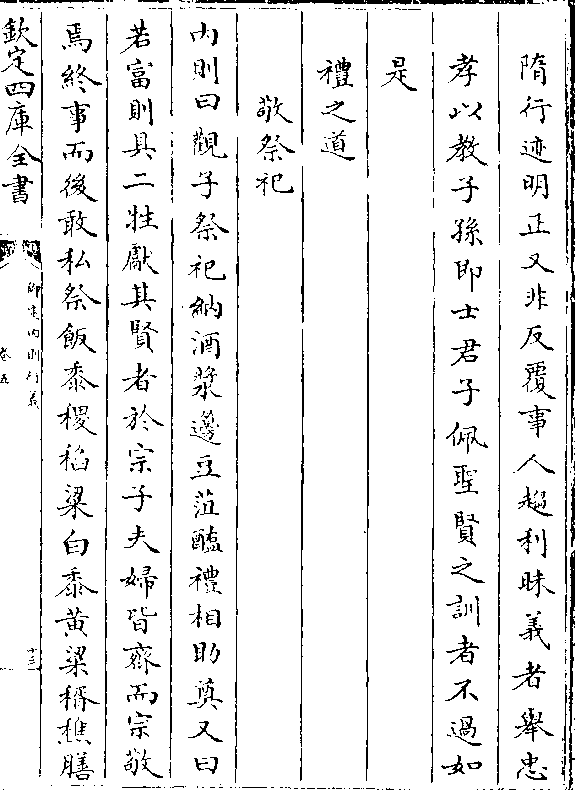 隋行迹明正又非反覆事人趨利昧義者舉忠
孝以教子孫即士君子佩聖賢之訓者不過如
是
禮之道
敬祭祀
内則曰觀于祭祀納酒漿籩豆菹醢禮相助奠又曰
若富則具二牲獻其賢者於宗子夫婦皆齊而宗敬
焉終事而後敢私祭飯黍稷稻粱白黍黄粱稰穛膳
欽定四庫全書
御定内則衍義
卷五
十三